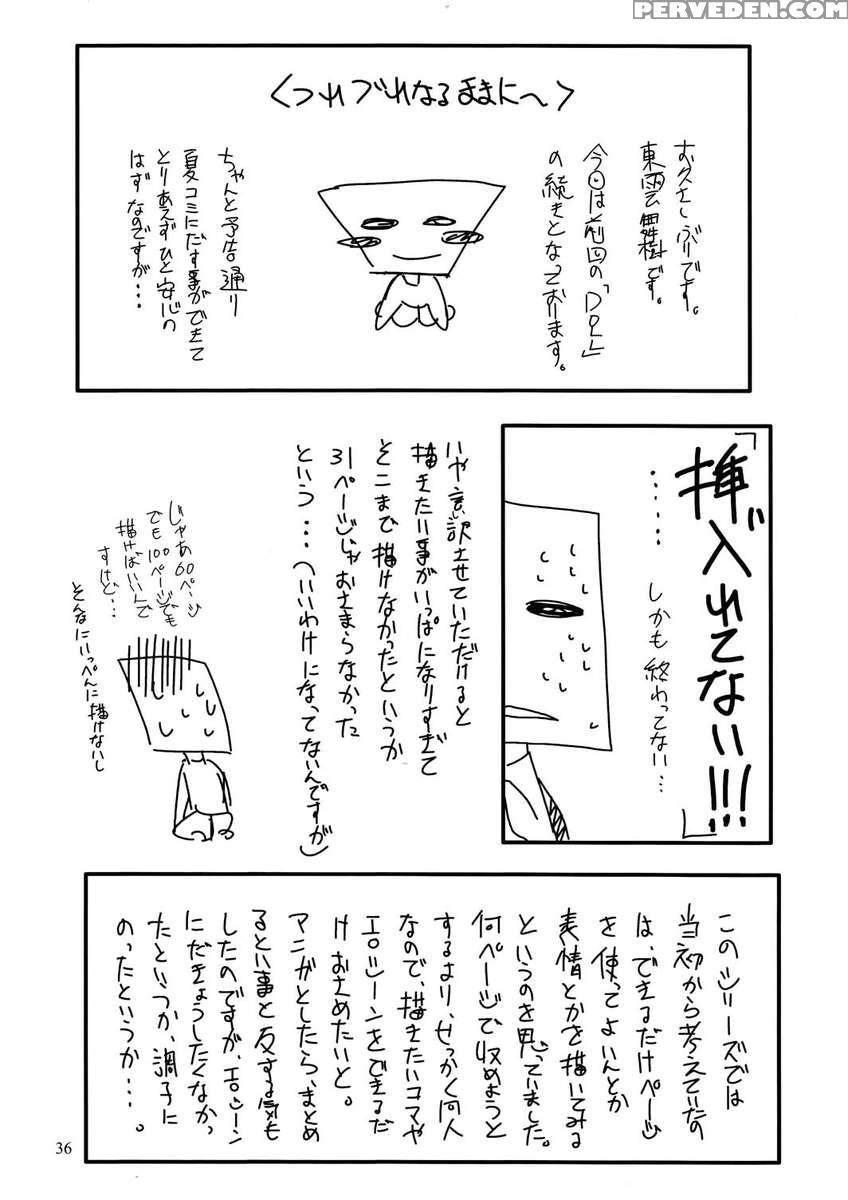 PERVEDEN.COM
〈つれづれなるままに〜〉
お久さしぶりです。
東雲龍樹です。
今回は前回の「DPL」
の続きとなっております。
ちゃんと予告通り
夏コミにだす事ができて
とりあえずひと安心の
はずなのですが・・・
「挿入れてない!!!」
・・・・・・しかも終わってない・・・
いや言訳させていただけると
描きたい事がいっぱになりすぎて
そこまで描けなかったというか
31ページじゃおさまらなかった
という・・・(いいわけになってないんですが)
じゃあ60ページ
でも100ページでも
描けばいいんで
すけど・・・
そんなにいっぺんに描けないし
このシリーズでは
当初から考えていたの
は、できるだけページ
を使ってよいんとか
表情とかを描いてみる
というのを思っていました。
何ページで収めようと
するより、せっかく同人
なので、描きたいコマや
エロシーンをできるだ
けおさめたいと。
マンガとしたら、まとめ
るとい事と反する気も
したのですが、エロシーン
にだきょうしたくなかっ
たというか、調子に
のったというか・・・。
36